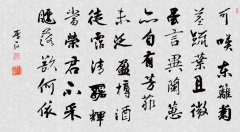 可嘆东籬菊
茎疏葉且微
雖言異蘭蕙
亦自有芳菲
未泛盈樽酒
徒霑清露輝
當榮君不采
飄落欲何依